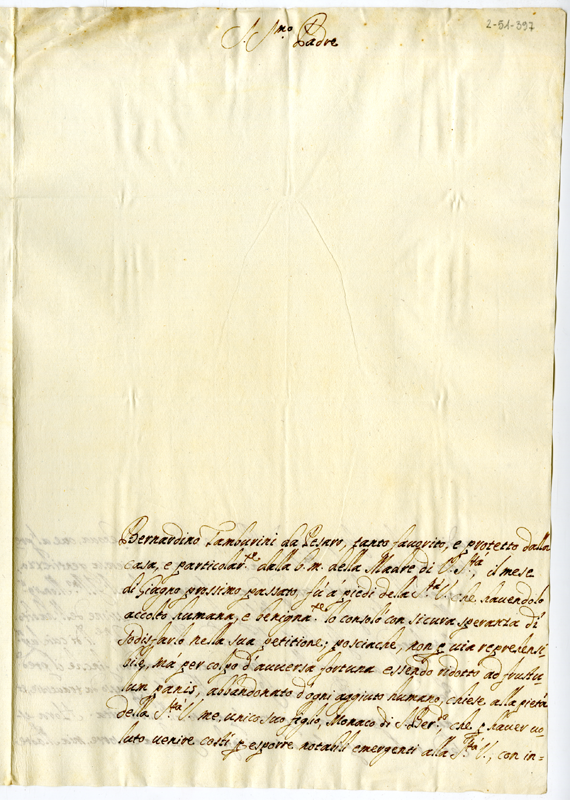 2-51-397
S.S.mo Padre
Bernardino Tamburini da Pesaro, tanto favorito, e protetto dalla
casa, e particolar.te dalla b.m. della Madre di V. S.tà, il mese
di Giugno prossimo passato, fù à piedi della S.tà V. che havendolo
accolto humana, e benigna.te lo consolò con sicura speranza di
sodisfarlo nella sua petitione; posciache, non p via reprensi-
bile, mà per colpo d'avversa fortuna essendo ridotto ad frustu-
lum panis, abbandonato d'ogni aggiuto humano, chiese alla pietà
della S.tà V. me, unico suo figlio, Monaco di S. Ber.do, che p haver vo-
luto venire costì p esporre notabili emergenti alla S.tà V., con in=